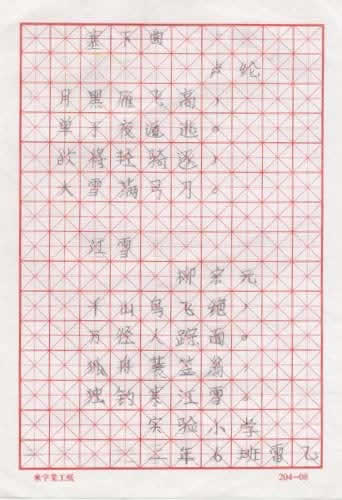 塞下曲
卢纶
月黑雁飞高，
单于夜遁逃。
欲将轻骑逐，
大雪满弓刀。
江雪
柳宗元
千山鸟飞绝，
万径人踪面。
孤舟蓑笠翁，
独钓寒江雪。
实验小学
二年6班雷飞
204—08